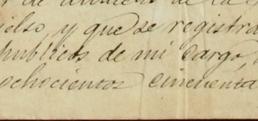 y que se registra
publicos de mi cargo,
ochocientos cincuenta